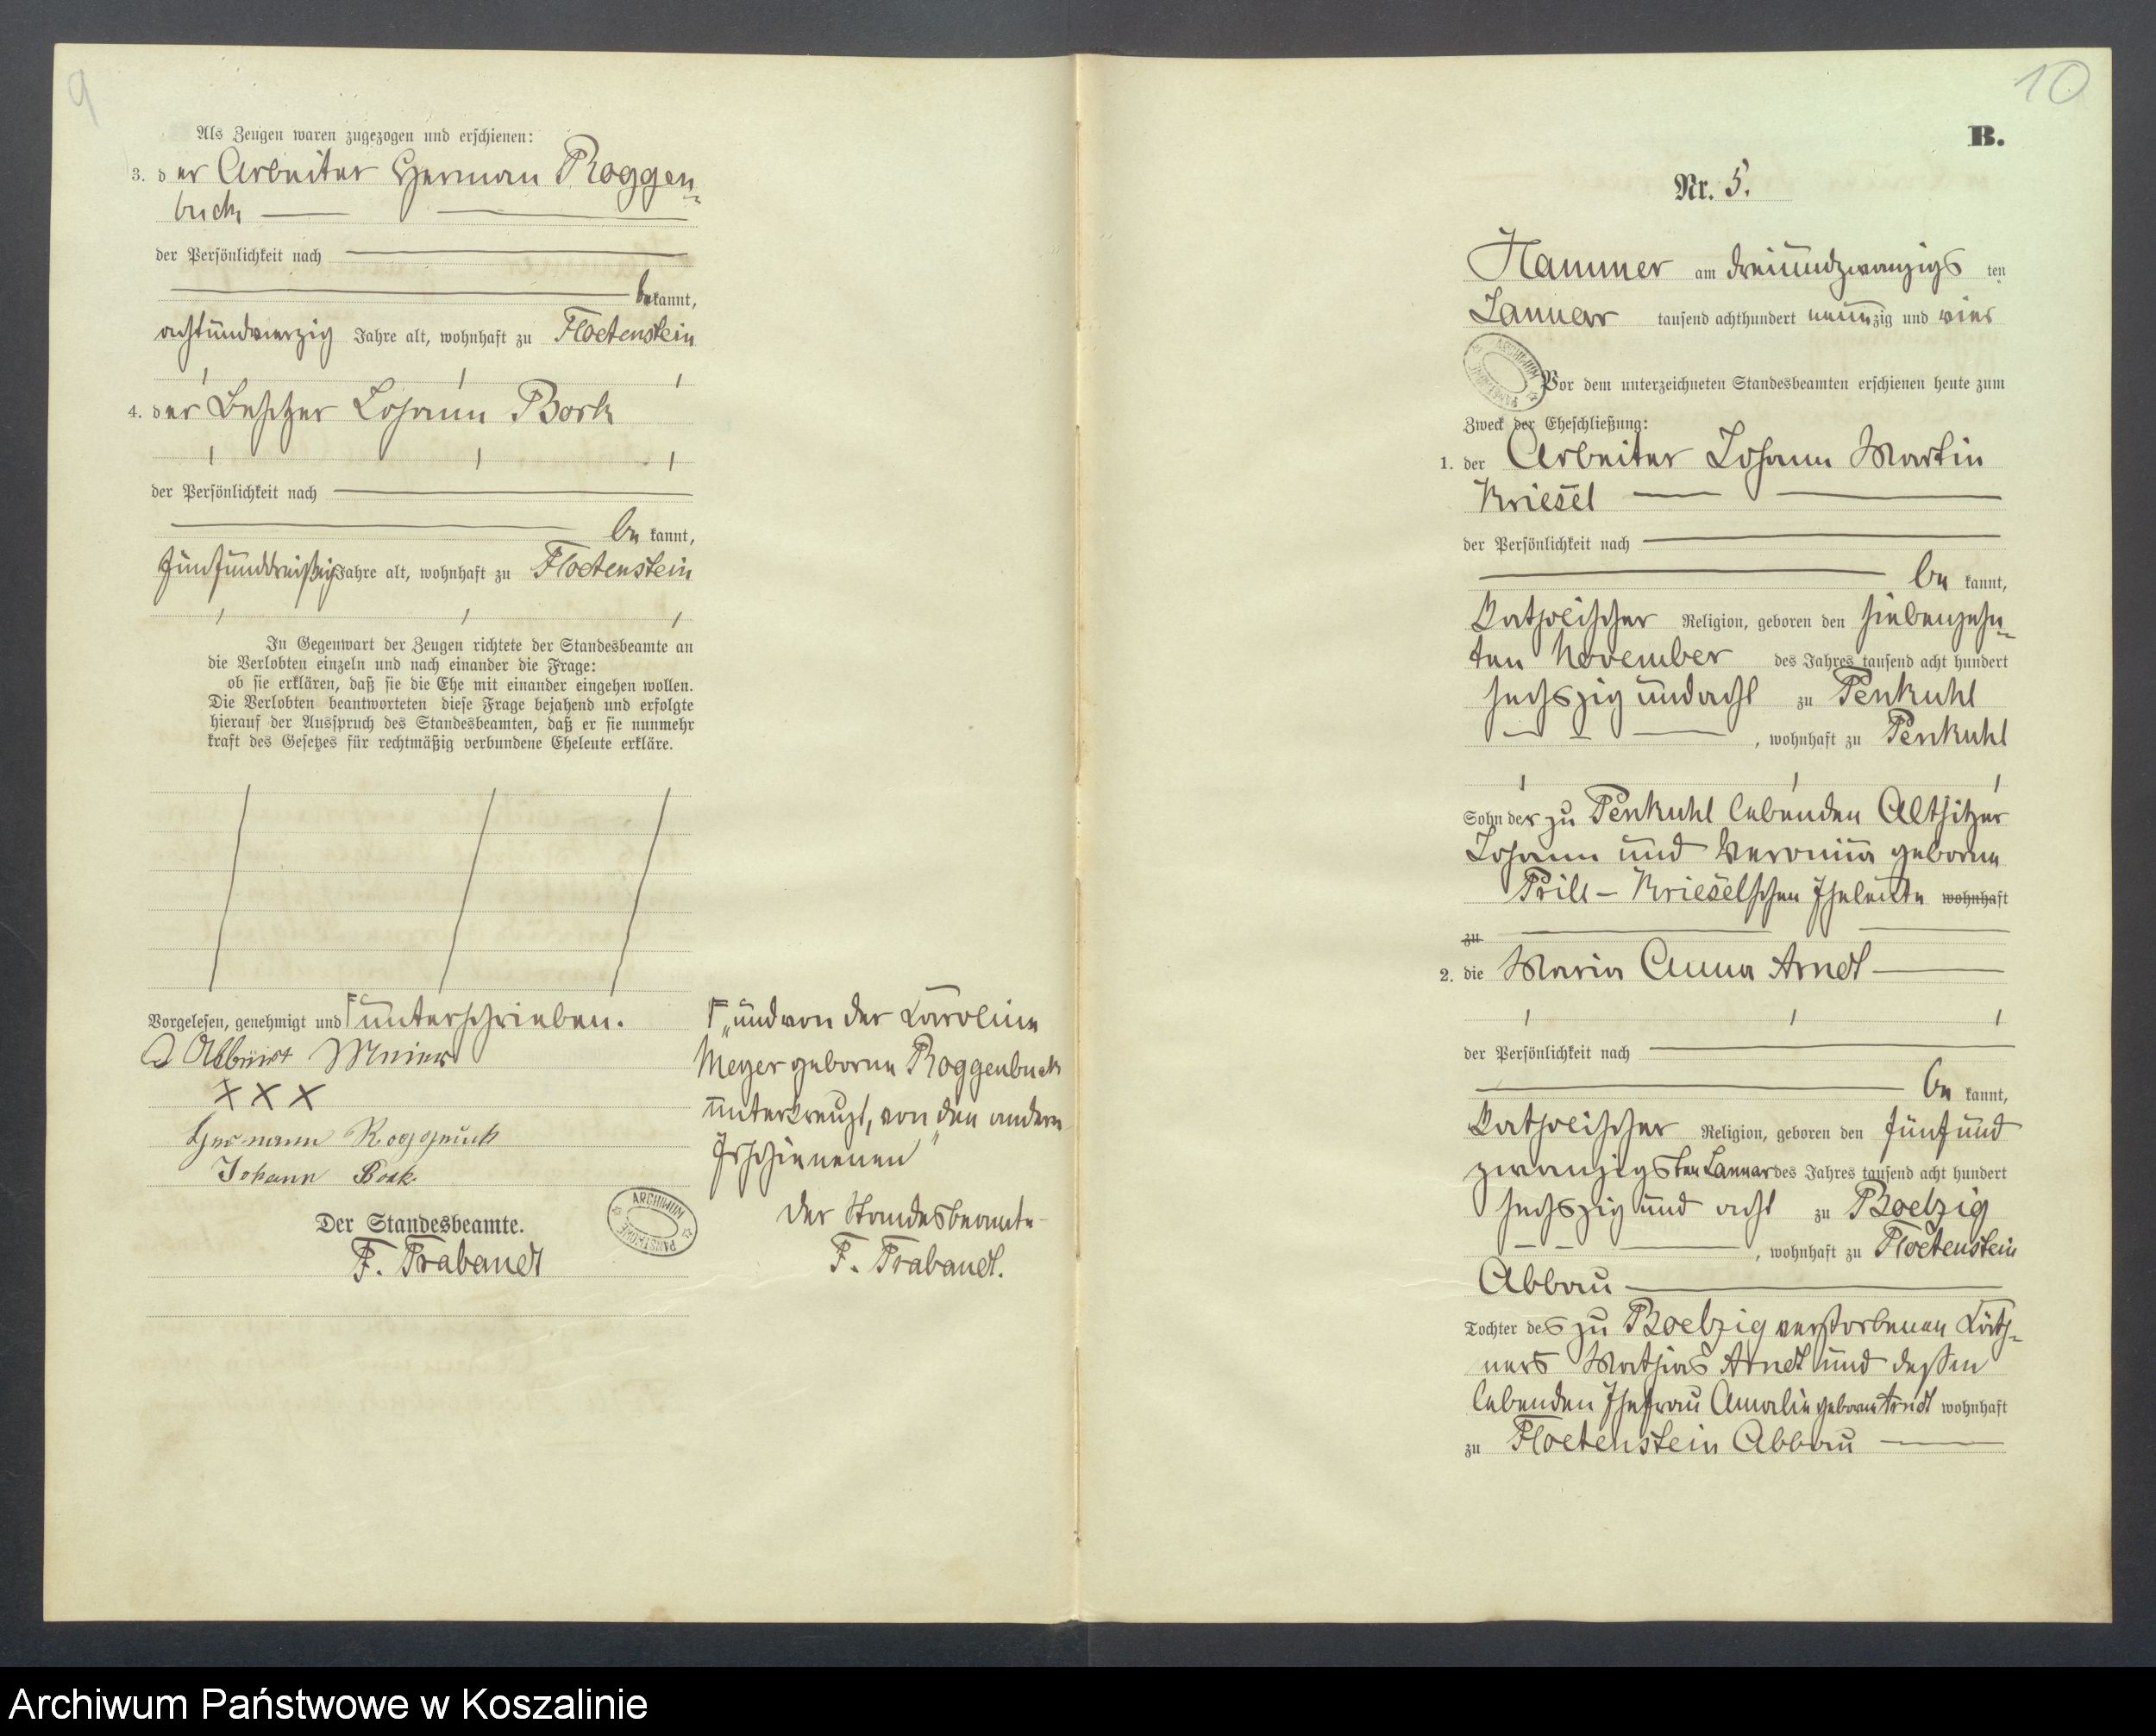 9
Als Zeugen waren zugezogen und erschienen:
3. der Arbeiter Herman Roggen-
buck
der Persönlichkeit nach
bekannt,
achtundvierzig Jahre alt, wohnhaft zu Floetenstein
4. der Besitzer Johann Bork
der Persönlichkeit nach
be kannt,
fünfunddreißig Jahre alt, wohnhaft zu Floetenstein
In Gegenwart der Zeugen richtete der Standesbeamte an
die Verlobten einzeln und nach einander die Frage:
ob sie erklären, daß sie die Ehe mit einander eingehen wollen.
Die Verlobten beantworteten diese Frage bejahend und erfolgte
hierauf der Ausspruch des Standesbeamten, daß er sie nunmehr
kraft des Gesetzes für rechtmäßig verbundene Eheleute erkläre.
Vorgelesen, genehmigt und unterschrieben.
Meier
XXX
Hermann
Johann Bork
Der Standesbeamte.
F. Trabandt
„und von der Karoline
Meyer geborne Roggenbuck
unterkreuzt, von den andern
Erschienenen"
Der Standesbeamte
F. Trabandt.
ARCHIWUM PAŃSTWOWE
10
B.
Nr. 5.
Hammer am dreiundzwanzigs ten
Januar tausend achthundert neunzig und vier
ARCHIWUM PAŃSTWOWE
Vor dem unterzeichneten Standesbeamten erschienen heute zum
Zweck der Eheschließung:
1. der Arbeiter Johann Martin
Kriesel
der Persönlichkeit nach
be kannt,
katholischer Religion, geboren den siebenzehn-
ten November des Jahres tausend acht hundert
sechszig und acht zu Penkuhl
, wohnhaft zu Penkuhl
Sohn der zu Penkuhl lebenden Altsitzer
Johann und Veronica geborne
Prill - Krieselschen Eheleute wohnhaft
zu
2. die Maria Anna Arndt
der Persönlichkeit nach
be kannt,
katholischer Religion, geboren den fünfund
zwanzigsten Januar des Jahres tausend acht hundert
sechszig und acht zu Boelzig
, wohnhaft zu Floetenstein
Abbau
Tochter des zu Boelzig verstorbenen Käth-
ners Mathias Arndt und dessen
lebenden Ehefrau Amalie geborne Arndt wohnhaft
zu Floetenstein Abbau
Archiwum Państwowe w Koszalinie